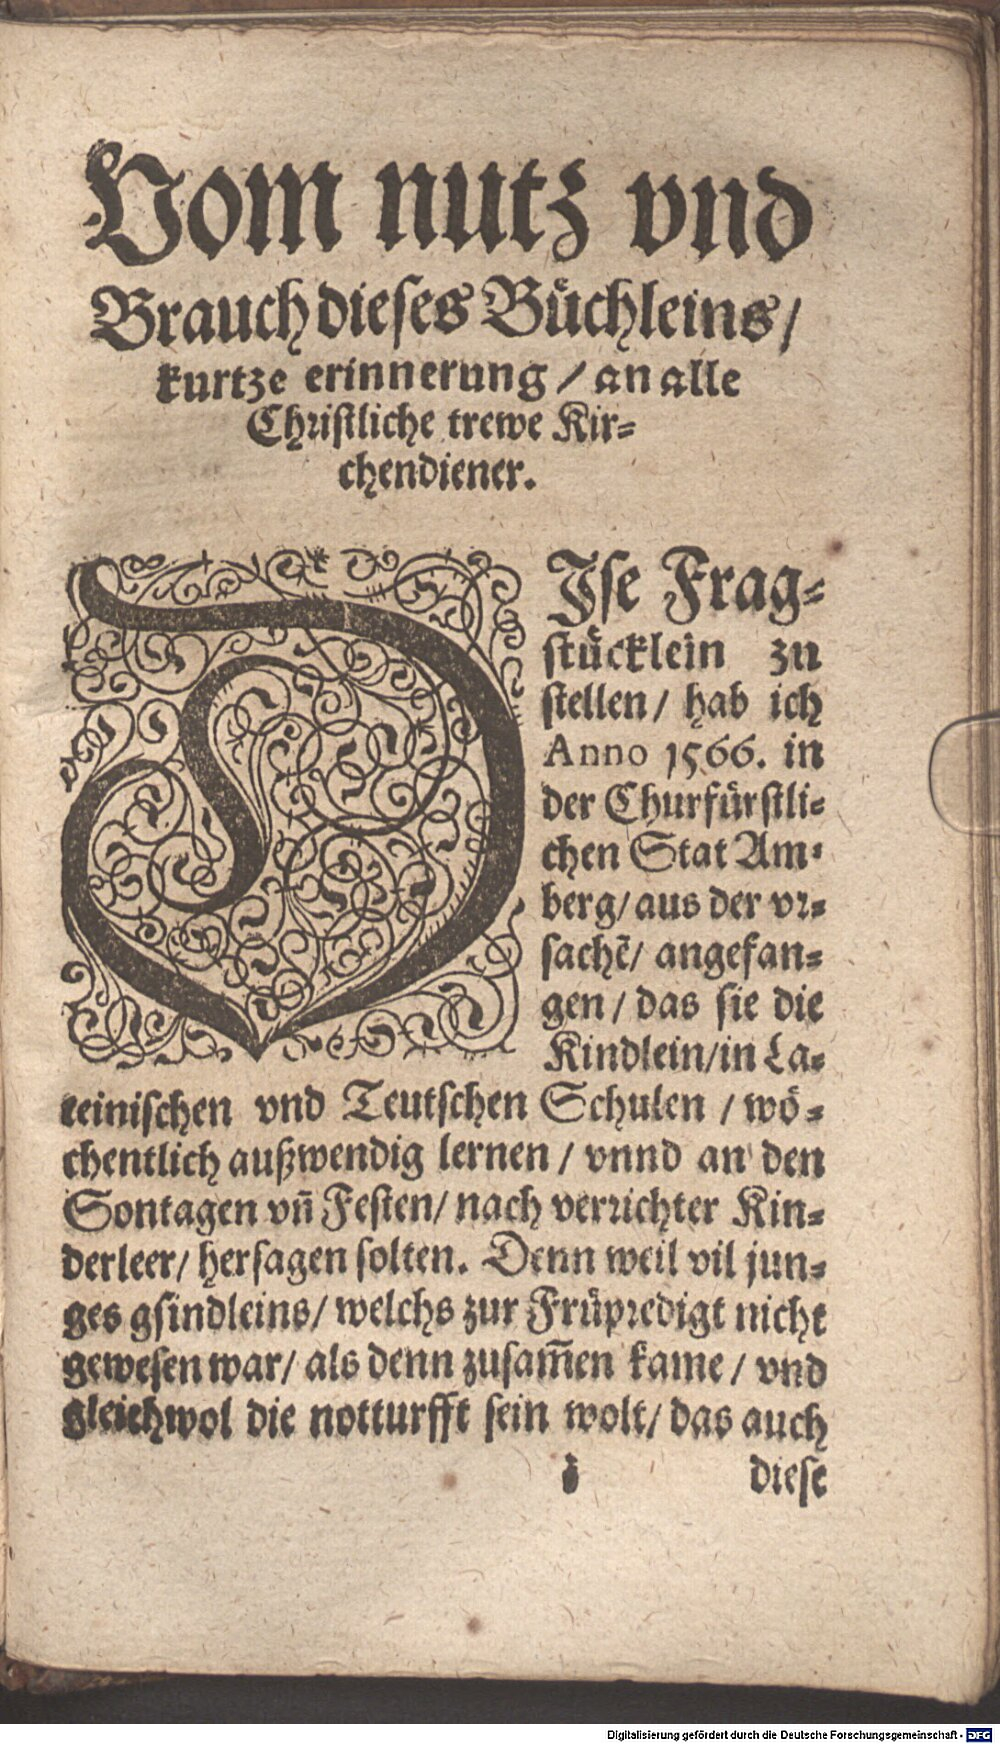 Vom nutz vnd
Brauch dieses Büchleins/
kurtze erinnerung / an alle
Christliche trewe Kir⸗
chendiener.
DIse Frag⸗
stücklein zu
stellen/ hab ich
Anno 1566. in
der Churfürstli⸗
chen Stat Am⸗
berg/ aus der vr⸗
sachẽ/ angefan⸗
gen / das sie die
Kindlein/in La⸗
teinischen vnd Teutschen Schulen / wö⸗
chentlich außwendig lernen / vnnd an den
Sontagen vñ Festen/ nach verrichter Kin⸗
derleer/ hersagen solten. Denn weil vil jun⸗
ges gsindleins/ welchs zur Früpredigt nicht
gewesen war/ als denn zusam̃en kame / vnd
gleichwol die notturfft sein wolt/ das auch
diese
Digitalisierung gefördert durch die Deutsche Forschungsgemeinschaft - DFG